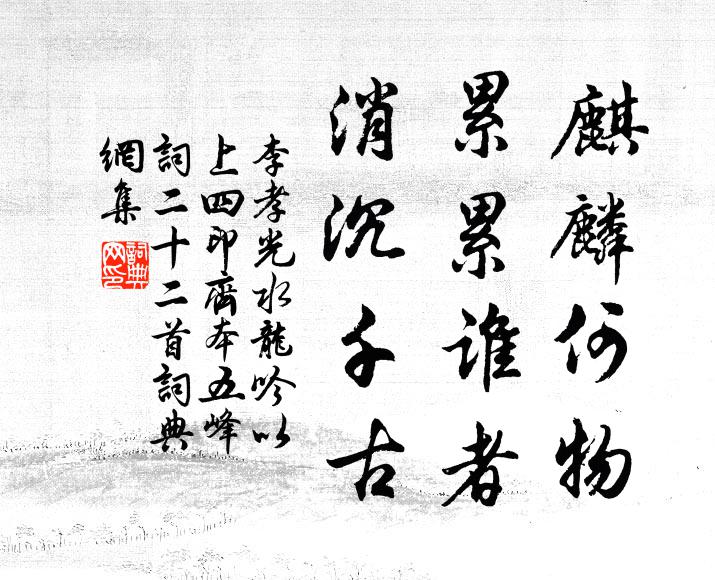 麒麟何物
累累谁者
消沉千古
李孝光水龍吟以
上四印齋本五峰
詞二十二首詞典
網集
詞典
网印